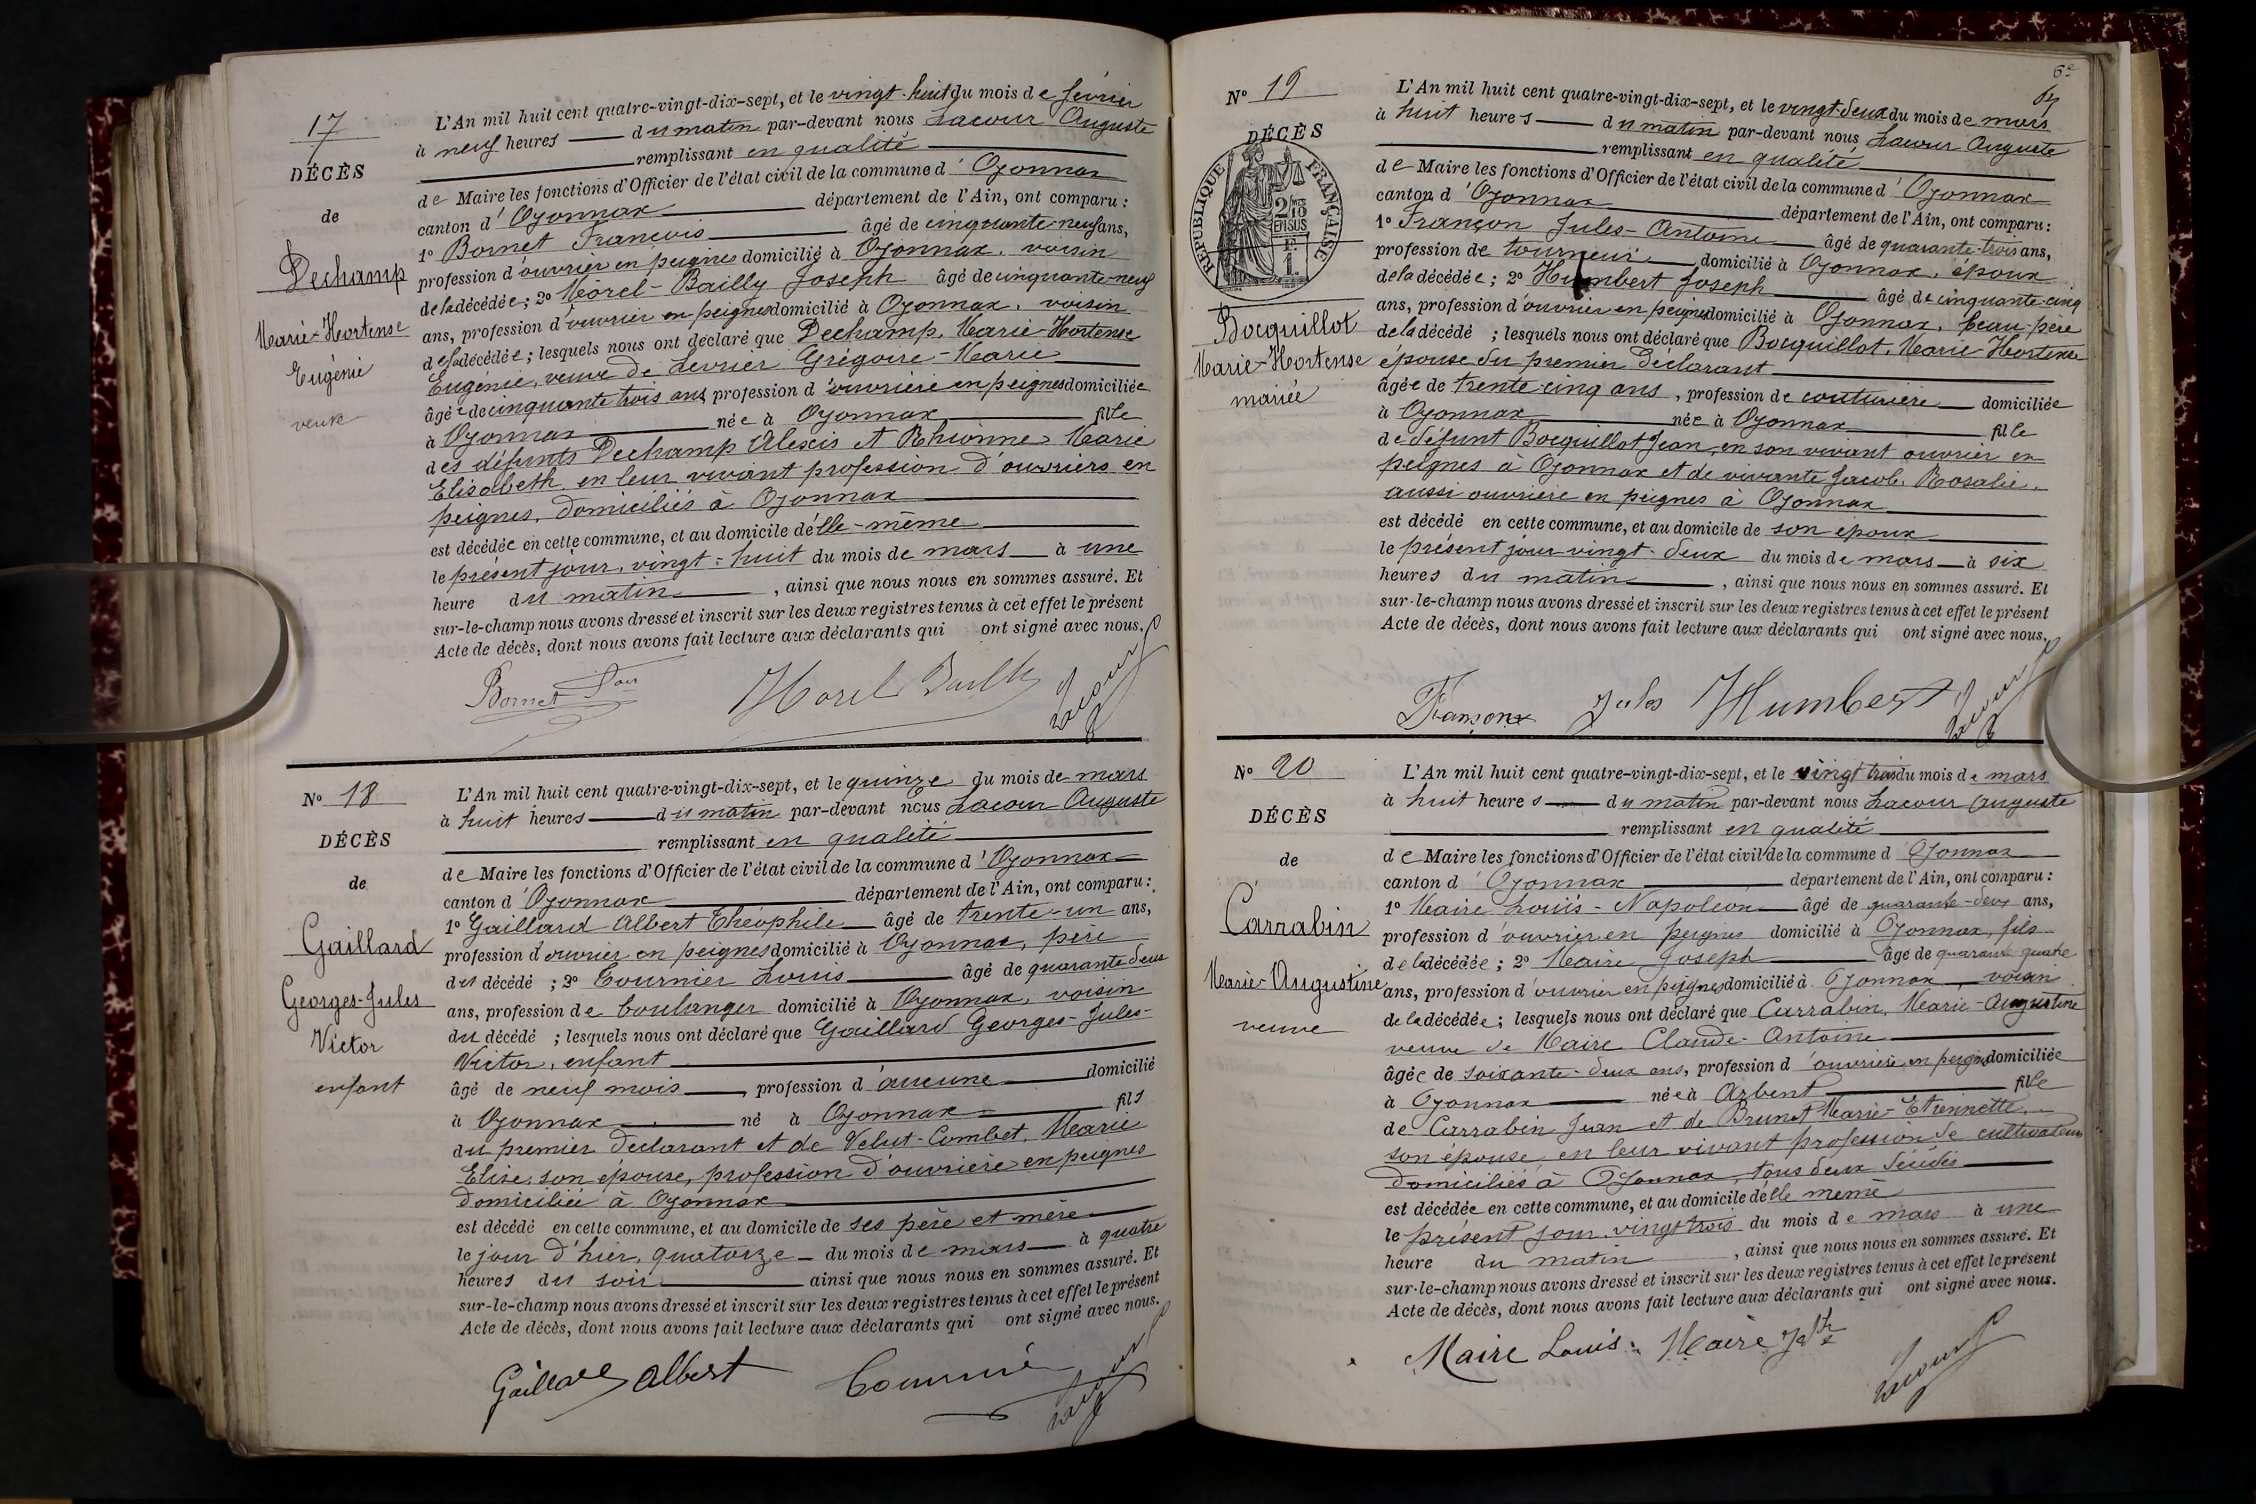 17
DÉCÈS
de
Dechamp
Marie-Hortense
Eugénie
veuve
L'An mil huit cent quatre-vingt-dix-sept, et le vingt-huit du mois de février
à neuf heures du matin par-devant nous Lacour Auguste
remplissant en qualité
de Maire les fonctions d'Officier de l'état civil de la commune d'Oyonnax
canton d'Oyonnax département de l'Ain, ont comparu :
1º Bornet François âgé de cinquante-neuf ans,
profession d'ouvrier en peignes domicilié à Oyonnax, voisin
de la décédée ; 2º Morel-Bailly Joseph âgé de cinquante-neuf
ans, profession d'ouvrier en peignes domicilié à Oyonnax, voisin
de la décédée ; lesquels nous ont déclaré que Dechamp, Marie-Hortense
Eugénie, veuve de Levrier Grégoire-Marie
âgée de cinquante trois ans, profession d'ouvrière en peignes domiciliée
à Oyonnax née à Oyonnax fille
des défunts Dechamp Alexis et Rhionne Marie
Elisabeth, en leur vivant profession d'ouvriers en
peignes, domiciliés à Oyonnax
est décédée en cette commune, et au domicile d'elle-même
le présent jour, vingt-huit du mois de mars à une
heure du matin, ainsi que nous nous en sommes assuré. Et
sur-le-champ nous avons dressé et inscrit sur les deux registres tenus à cet effet le présent
Acte de décès, dont nous avons fait lecture aux déclarants qui ont signé avec nous.
Bornet Morel Bailly Lacour
Nº 18
DÉCÈS
de
Gaillard
Georges-Jules
Victor
enfant
L'An mil huit cent quatre-vingt-dix-sept, et le quinze du mois de mars
à huit heures du matin par-devant nous Lacour Auguste
remplissant en qualité
de Maire les fonctions d'Officier de l'état civil de la commune d'Oyonnax
canton d'Oyonnax département de l'Ain, ont comparu :
1º Gaillard Albert Théophile âgé de trente-un ans,
profession d'ouvrier en peignes domicilié à Oyonnax, père
du décédé ; 2º Tournier Louis âgé de quarante deux
ans, profession de boulanger domicilié à Oyonnax, voisin
du décédé ; lesquels nous ont déclaré que Gaillard Georges-Jules-
Victor, enfant
âgé de neuf mois, profession d'aucune domicilié
à Oyonnax né à Oyonnax fils
du premier déclarant et de Velut-Combet, Marie
Elise, son épouse, profession d'ouvrière en peignes
domiciliée à Oyonnax
est décédé en cette commune, et au domicile de ses père et mère
le jour d'hier, quatorze du mois de mars à quatre
heures du soir ainsi que nous nous en sommes assuré. Et
sur-le-champ nous avons dressé et inscrit sur les deux registres tenus à cet effet le présent
Acte de décès, dont nous avons fait lecture aux déclarants qui ont signé avec nous.
Gaillard Albert Lacour
6e
Nº 19
DÉCÈS
RÉPUBLIQUE FRANÇAISE
2/10 EN SUS
Bocquillot
Marie-Hortense
mariée
L'An mil huit cent quatre-vingt-dix-sept, et le vingt-deux du mois de mars
à huit heures du matin par-devant nous Lacour Auguste
remplissant en qualité
de Maire les fonctions d'Officier de l'état civil de la commune d'Oyonnax
canton d'Oyonnax département de l'Ain, ont comparu :
1º Françon Jules-Antoine âgé de quarante-trois ans,
profession de tourneur domicilié à Oyonnax, époux
de la décédée ; 2º Humbert Joseph âgé de cinquante-cinq
ans, profession d'ouvrier en peignes domicilié à Oyonnax, beau-père
de la décédé ; lesquels nous ont déclaré que Bocquillot, Marie-Hortense
épouse du premier déclarant
âgée de trente-cinq ans, profession de couturière domiciliée
à Oyonnax née à Oyonnax fille
de défunt Bocquillot Jean, en son vivant ouvrier en
peignes à Oyonnax et de vivante Jacob, Rosalie,
aussi ouvrière en peignes à Oyonnax
est décédé en cette commune, et au domicile de son époux
le présent jour vingt-deux du mois de mars à six
heures du matin, ainsi que nous nous en sommes assuré. Et
sur-le-champ nous avons dressé et inscrit sur les deux registres tenus à cet effet le présent
Acte de décès, dont nous avons fait lecture aux déclarants qui ont signé avec nous.
Françon Jules Humbert Lacour
Nº 20
DÉCÈS
de
Carrabin
Marie-Augustine
veuve
L'An mil huit cent quatre-vingt-dix-sept, et le vingt trois du mois de mars
à huit heures du matin par-devant nous Lacour Auguste
remplissant en qualité
de Maire les fonctions d'Officier de l'état civil de la commune d Oyonnax
canton d'Oyonnax département de l'Ain, ont comparu :
1º Maire Louis-Napoléon âgé de quarante-deux ans,
profession d'ouvrier en peignes domicilié à Oyonnax, fils
de la décédée ; 2º Maire Joseph âgé de quarante quatre
ans, profession d'ouvrier en peignes domicilié à Oyonnax, voisin
de la décédée ; lesquels nous ont déclaré que Carrabin, Marie-Augustine
veuve de Maire Claude-Antoine
âgée de soixante-deux ans, profession d'ouvrière en peignes domiciliée
à Oyonnax née à Arbent fille
de Carrabin Jean et de Brunet Marie-Etiennette,
son épouse, en leur vivant profession de cultivateurs
domiciliés à Oyonnax, tous deux décédés
est décédée en cette commune, et au domicile d'elle même
le présent jour, vingt trois du mois de mars à une
heure du matin, ainsi que nous nous en sommes assuré. Et
sur-le-champ nous avons dressé et inscrit sur les deux registres tenus à cet effet le présent
Acte de décès, dont nous avons fait lecture aux déclarants qui ont signé avec nous.
Maire Louis Maire Jph Lacour